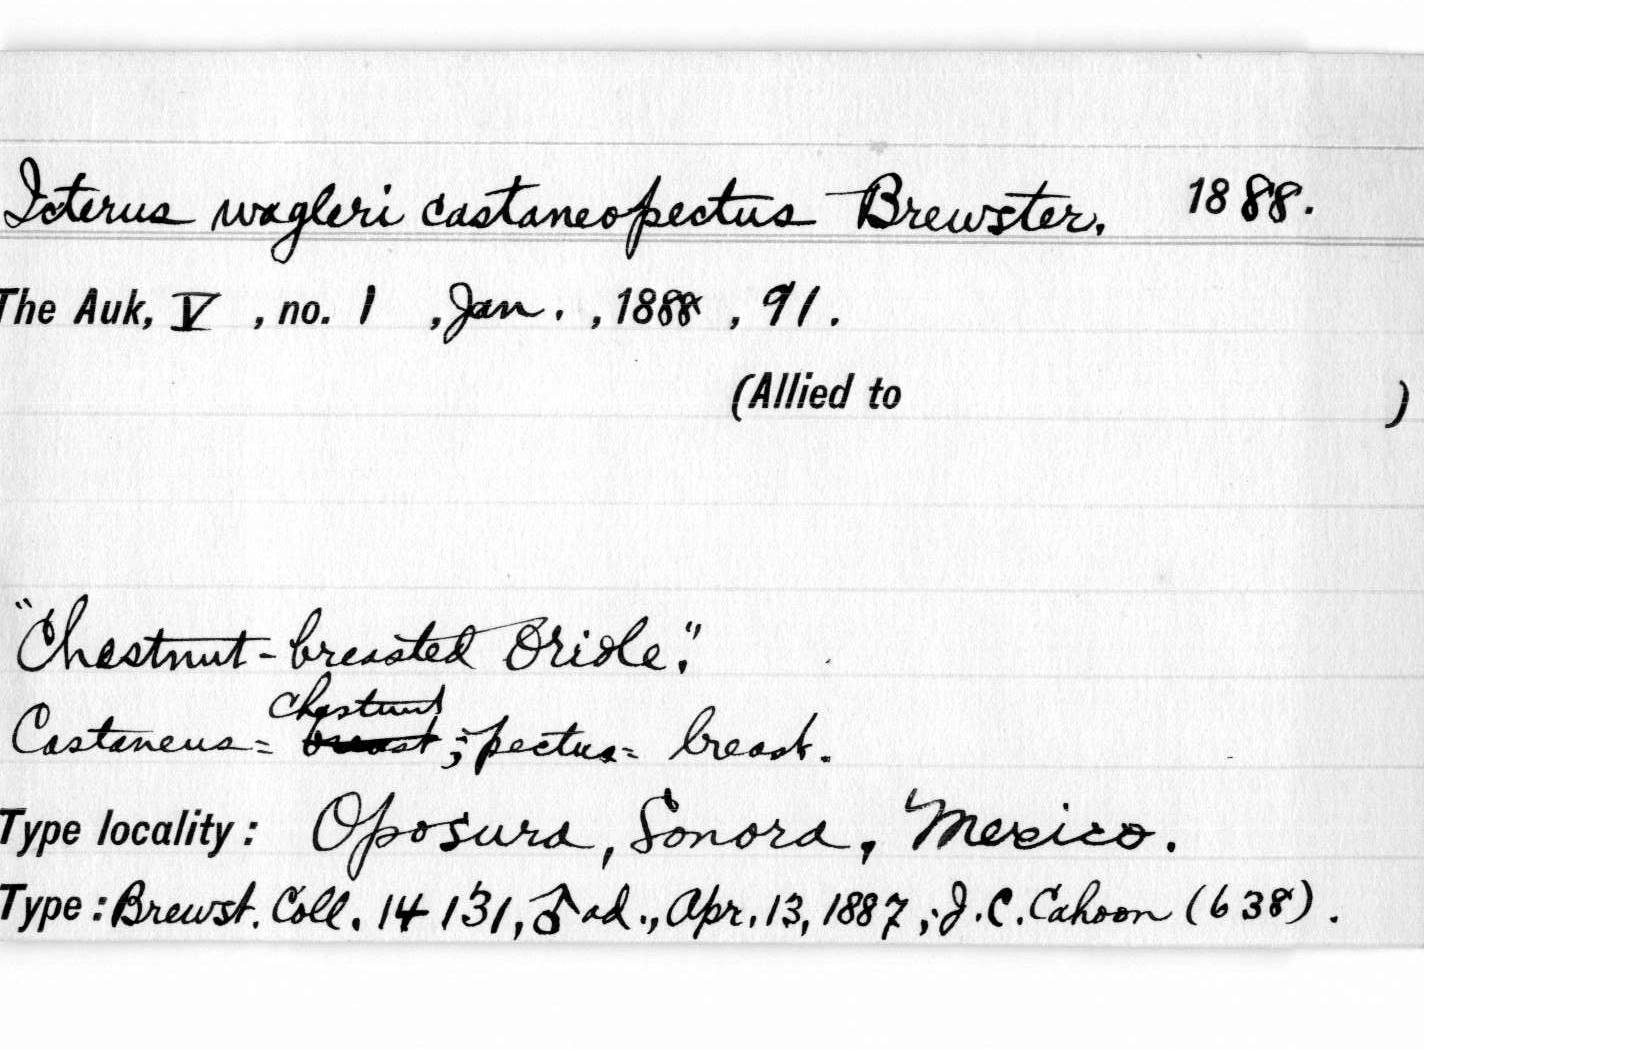 Icterus wagleri castaneopectus Brewster. 1888.
The Auk, V, no. 1, Jan., 1888, 91.
(Allied to )
"Chestnut-breasted Oriole."
chestnut
Castaneus = breast; pectus = breast.
Type locality: Oposura, Sonora, Mexico.
Type: Brewst. Coll. 14131, ♂ ad., Apr. 13, 1887; J. C. Cahoon (638).